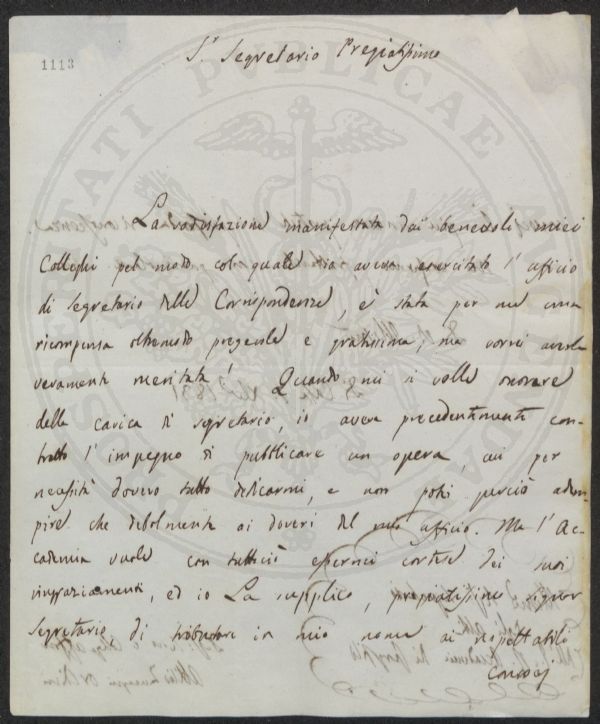 1113
S.r Segretario Pregiatissimo
La sodisfazione manifestata dai benevoli miei
Colleghi pel modo col quale io aveva esercitato l'ufficio
di Segretario delle Corrispondenze, e' stata per me una
ricompensa oltremodo pregevole e gratissima, ma vorrei averla
veramente meritata! Quando mi si volle onorare
della carica di segretario, io aveva precedentemente con-
tratto l'impegno di pubblicare un opera, cui per
necessità dovevo tutto dedicarmi, e non potei perciò adem-
pire che debolmente ai doveri del mio ufficio. Ma l'Ac-
cademia vuole con tuttociò essermi cortese dei suoi
ringraziamenti, ed io La supplico, pregiatissimo signor
Segretario di tributare in mio nome ai rispettabili
PROSPERITATI PUBLICAE AUGENDAE